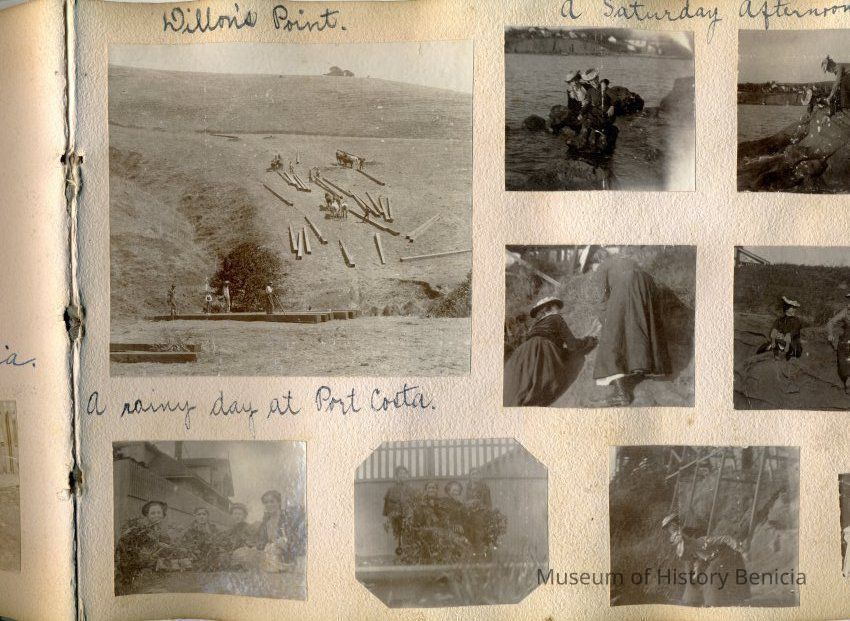 Dillon's Point.
A Saturday Afternoon
ia.
A rainy day at Port Costa.
Museum of History Benicia